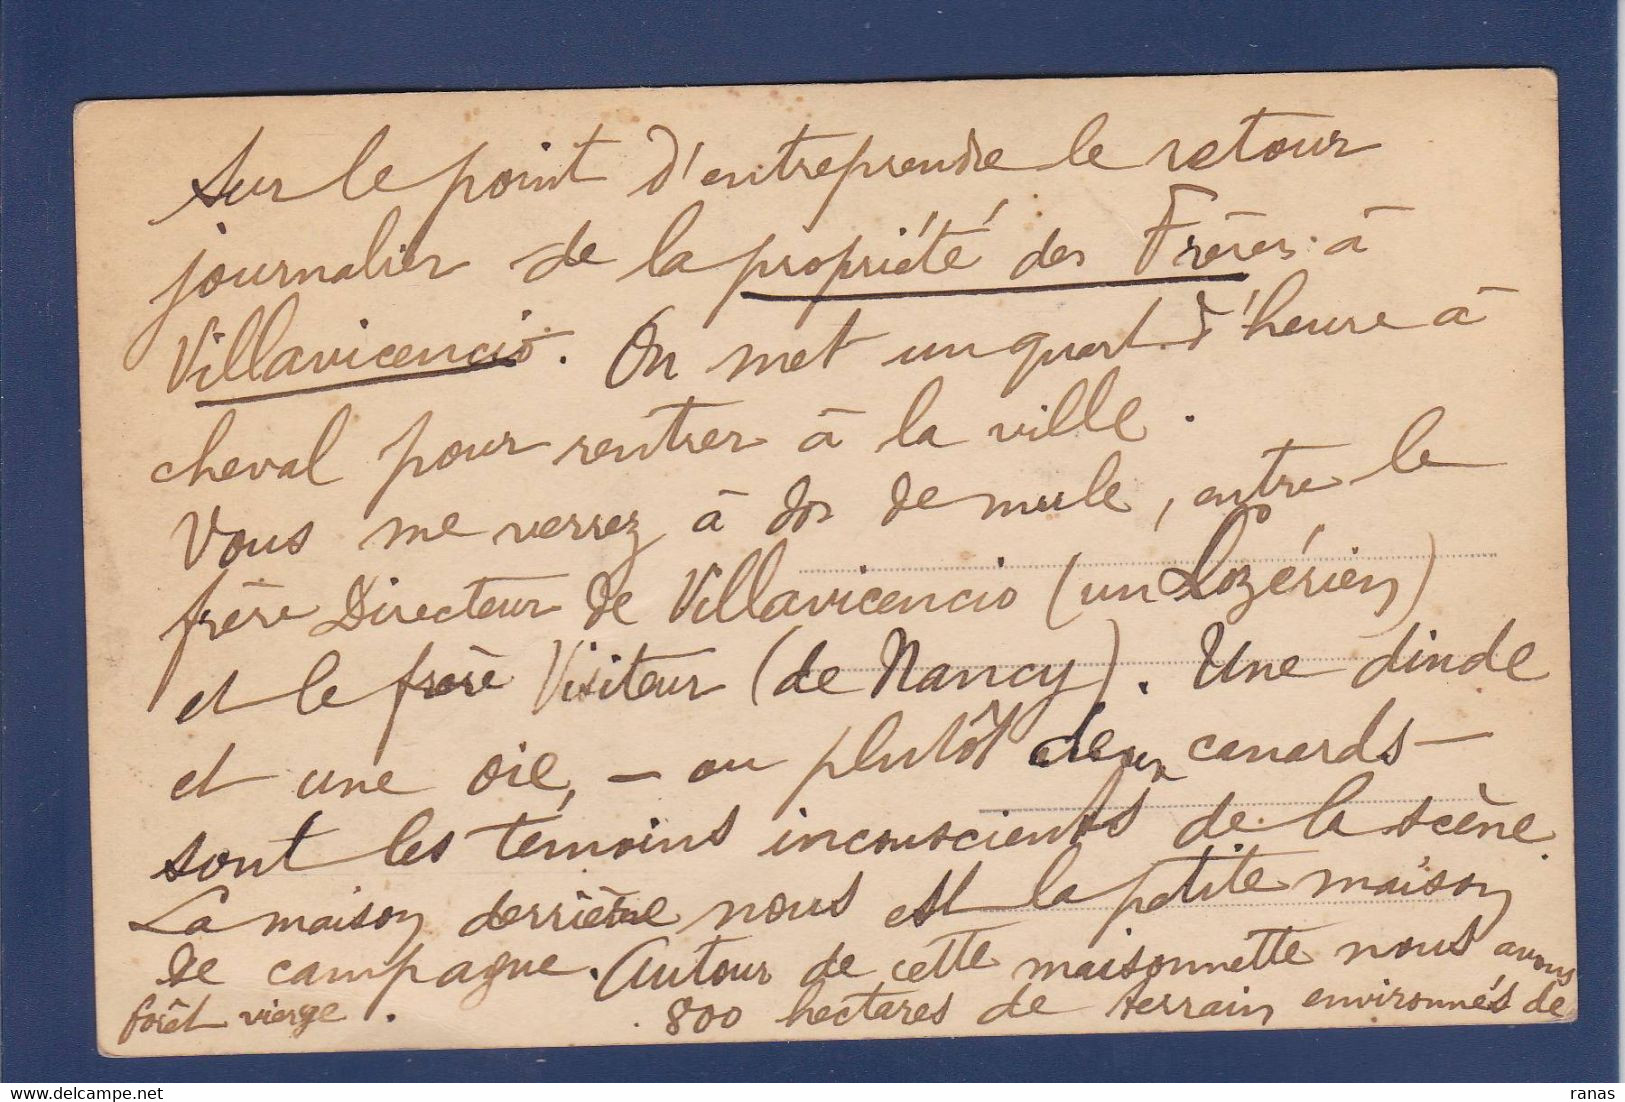 Sur le point d'entreprendre le retour
journalier de la propriété des Frères à
Villavicencio. On met un quart d'heure à
cheval pour rentrer à la ville.
Vous me verrez à dos de mule, entre le
frère Directeur de Villavicencio (un Lozérien)
et le frère Visiteur (de Nancy). Une dinde
et une oie, — ou plutôt deux canards —
sont les témoins inconscients de la scène.
La maison derrière nous est la petite maison
de campagne. Autour de cette maisonnette nous avons
800 hectares de terrain environnés de
forêt vierge.
ranas